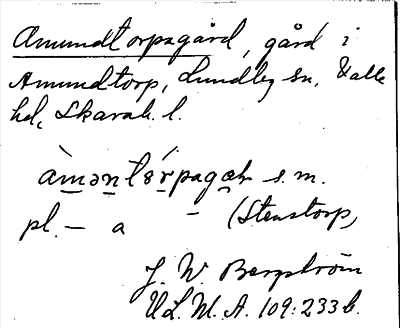 Amundtorpagård, gård i
Amundtorp, Lundby sn, Valle
hd, Skarab. l.
àməntórpagæh s.m.
pl. – a – (Stenstorp,
J. W. Bergström
ULMA. 109:233 b.